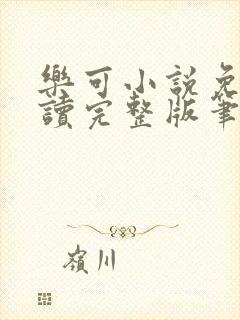 樂可小說免
讀完整版筆
嶺川